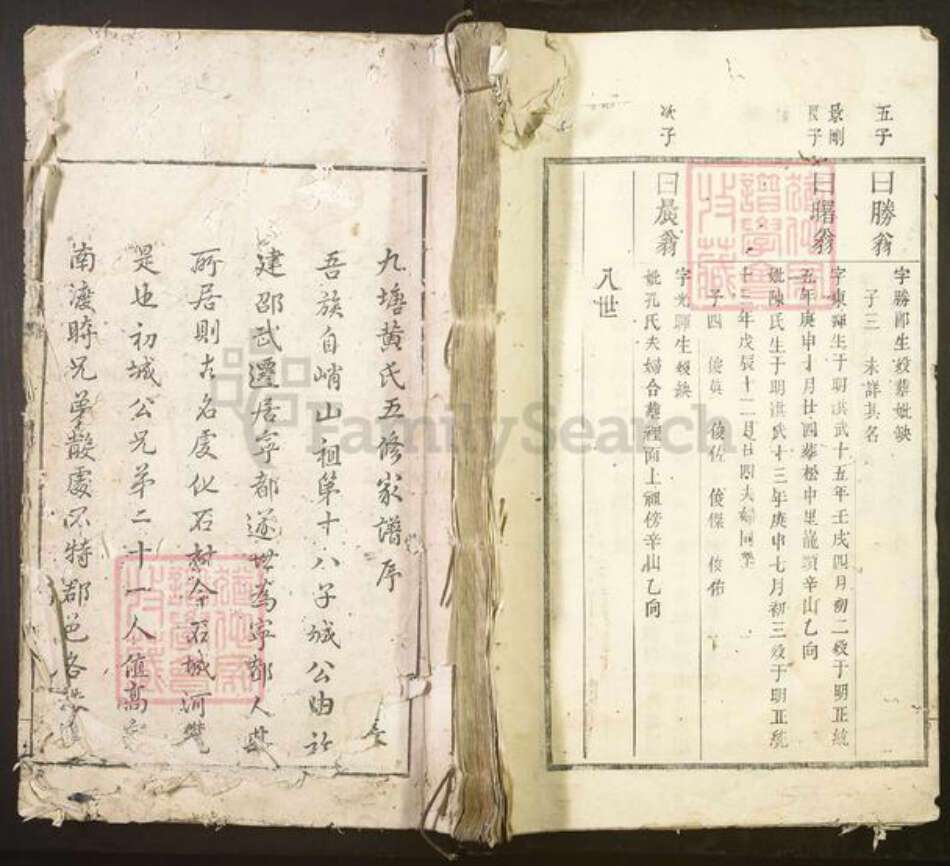 五子
曰勝翁
字勝郎生歿葬妣缺
子三 未詳其名
景剛
長子
曰曙翁
字東暉生于明洪武十五年壬戌四月初二歿于明正統
五年庚申十月廿四葬松中里龍頭辛山乙向
妣陳氏生于明洪武十三年庚申七月初三歿于明正統
十三年戊辰十二月廿四夫婦同塋
子四 俊英 俊佐 俊傑 俊佑
次子
曰晨翁
字光暉生歿缺
妣孔氏夫婦合葬裡面上祖傍辛山乙向
八世
九塘黄氏五修家譜序
吾族自峭山祖第十八子城公由
建邵武遷居寧都遂世為寧都人
所居則古名虔化石村今石城河
是也初城公兄弟二十一人值高
南渡時兄弟散處不特郡邑各
FamilySearch